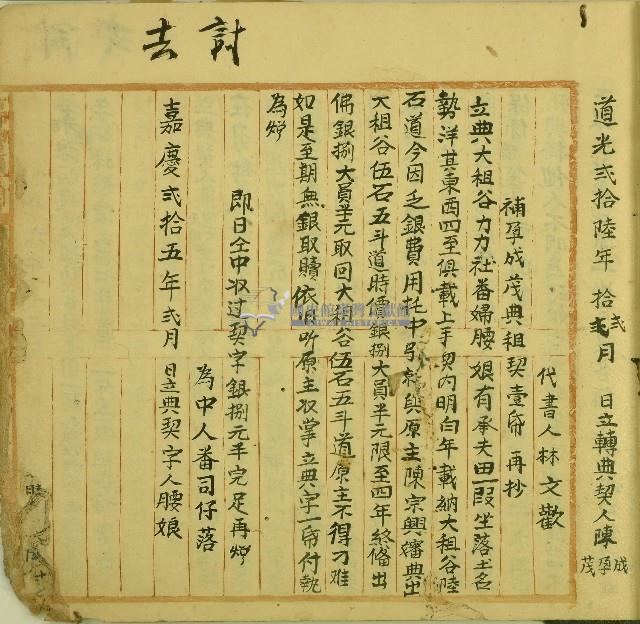 討去
道光弍拾陸年拾弍月 日立轉典契人陳成孕茂
代書人林文歡
補孕成茂典租契壹帋再抄
立典大租谷力力社番婦腰娘有承夫田一叚坐落土名
勢洋其東西四至俱載上手契内明白年載納大租谷陸
石道今因乏銀費用托中引就與原主陳宗興嬸典出
大租谷伍石五斗道時價銀捌大員半元限至四年終俻出
佛銀捌大員半元取回大租谷伍石五斗道原主不得刁难
如是至期無銀取贖依旧听原主收掌立典字一帋付執
為炤
即日仝中收过契字銀捌元半完足再炤
為中人番司仔落
嘉慶弍拾五年弍月 日立典契字人腰娘
國史館臺灣文獻館